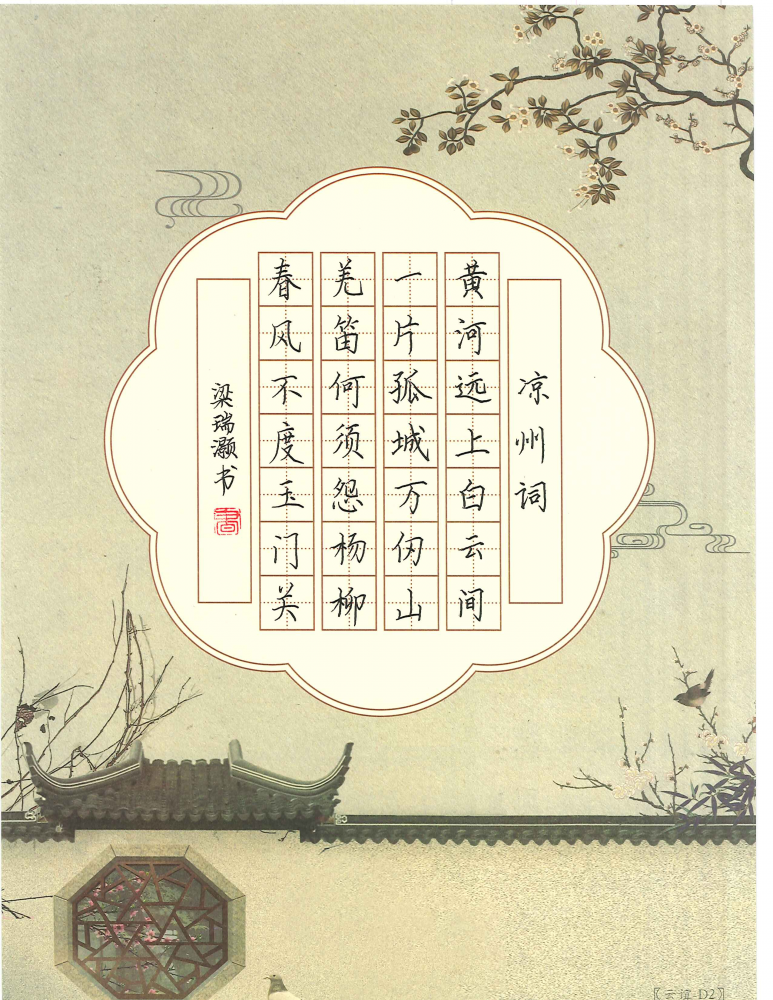 凉州词
黄河远上白云间
一片孤城万仞山
羌笛何须怨杨柳
春风不度玉门关
梁瑞灏书